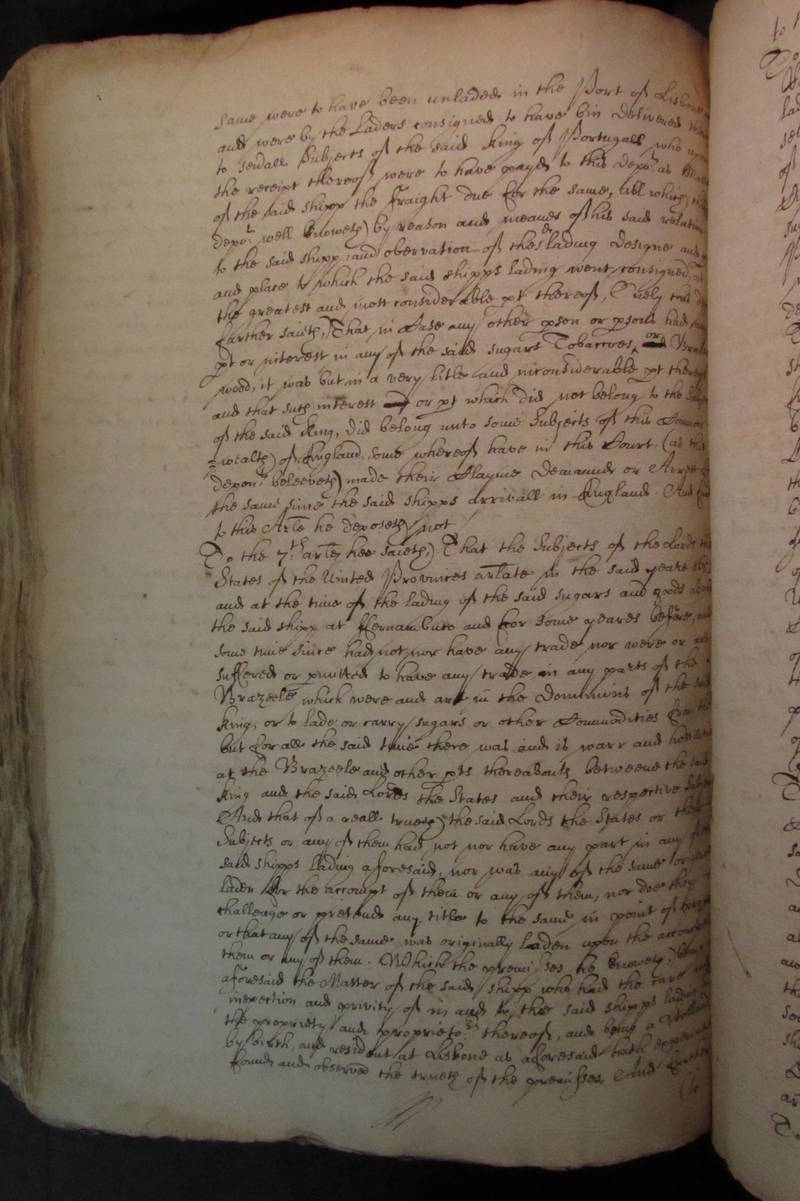 same were to have been unladed in the Port of Lisbone
and were by the Laders consigned to have bin delivered
to sevall Subjects of the said King of Portugall who upon
the receipt thereof were to have payed to this depot. as
of the said shipp the fraight due for the same, All which
depot. well knoweth by reason and meanes of his said relation
to the said shipp, and obervation of the lading designe and
and place to which the said shipps lading went consigned
the greatest and most considerable pt thereof, Onely this
farther saieth, That in Case any other pson or psons had
pt or interest in any of the said sugars Tobaccoes, or
wood, it was but in a very litle and inconsiderable pt thereof
and that such interest or pt which did not belong to the
of the said King, did belong unto some Subjects of this Common
=wealth of England, some whereof have in this Court (as this
depont. beleeveth) made their Clayme Demannd or
the same since the said shipps arrivall in England. And
to this Arle he deposeth not
To the 7th. arle hee saieth, That the Subjects of the Lords the
States of the United Provinces arlate in the said yeare
and at the time of the lading of the said sugars and goods
the said shipp at ffernambuco and for some yeares before, and
some time since had not nor have any trade nor were or
suffered or pmitted to have any trade in any parts of the
Brazeele which were and are in the Dominions of the said
King, or to lade or carry sugars or other Commodities
but for all the said time there was and is warr and
at the Brazeele and other pts thereabouts betweene the said
King and the said Lords the States and their respective
And that of a reall trueth the said Lords the States or their
Subjects or any of them had not nor have any part in any
said shipps lading aforesaid, nor was any of the same
laden for the accompt of them or any of them, nor doe they
challenge or pretende any title to the same in point of
or that any of the same was originally laden upon the accompt
them or any of them. Which the premisses he knoweth being
aforesaid the Master of the said shipp who had the care and
inspection and privity of in and to the said shipps lading
the propriety and proprietors thereof, and being a
by birth, and resident at Lisbone as aforesaid hath
found and observed the trueth of the premisses, And further
to